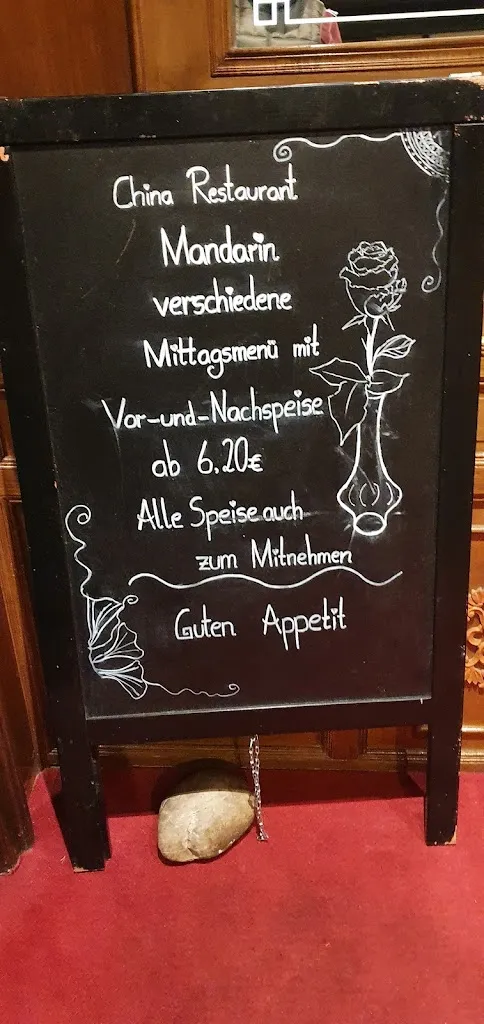 China Restaurant
Mandarin
verschiedene
Mittagsmenü mit
Vor-und-Nachspeise
ab 6.20€
Alle Speise auch
zum Mitnehmen
Guten Appetit